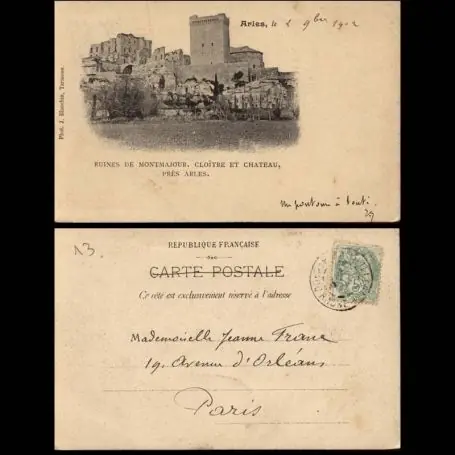 Arles, le 2 9bre 1902
Phot. J. Blanchin, Tarascon.
RUINES DE MONTMAJOUR, CLOÎTRE ET CHATEAU,
PRÈS ARLES.
à
A3
RÉPUBLIQUE FRANÇAISE
CARTE POSTALE
Ce côté est exclusivement réservé à l'adresse
Mademoiselle Jeanne Franc
19, Avenue d'Orléans
Paris